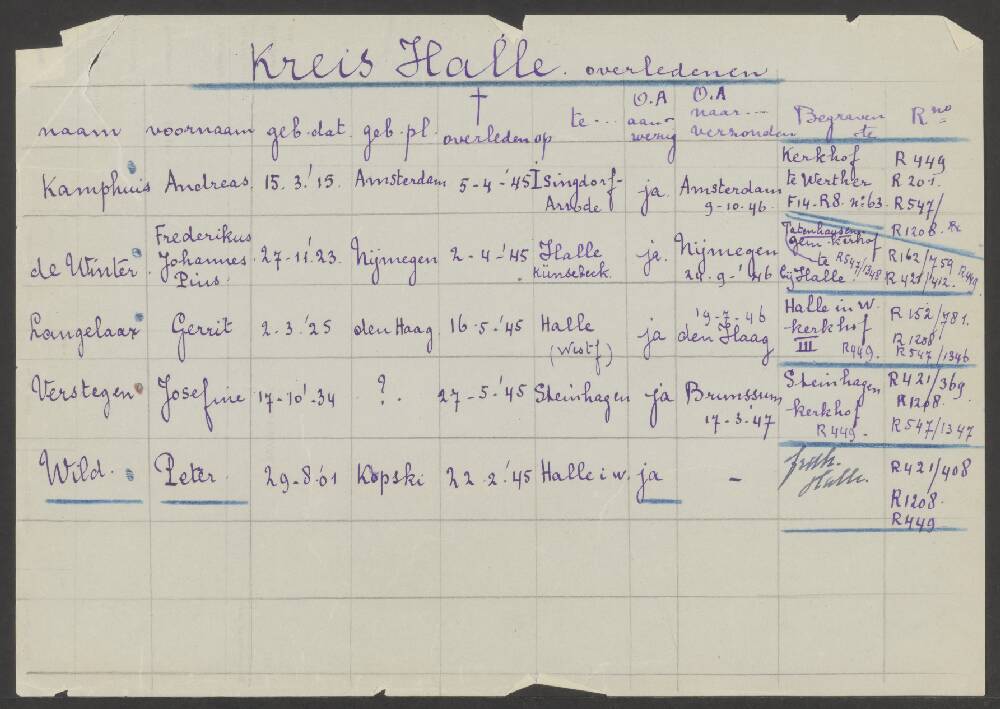 Kreis Halle. overledenen
naam voornaam geb. dat. geb. pl. † overleden op te ... O.A aanwezig O.A naar ... verzonden Begraven te R no
Kamphuis Andreas 15.3.'15. Amsterdam 5-4-'45 Isingdorf-Arrode ja. Amsterdam 9-10-46. Kerkhof te Werther F14-R8. no:63. R449 R201. R547/
de Winter Frederikus Johannes Pius. 27-11.'23. Nijmegen 2-4-'45 Halle Künsebeck. ja. Nijmegen 24.9-'46 Tatenhausen gem-kerhof te R547/1348 bij Halle. R1208. R162/759 R421/412. R449.
Langelaar Gerrit 2.3.'25 den Haag 16-5-'45 Halle (Westf) ja 19-7-46 den Haag Halle in W. kerkhof III R449. R152/781. R1208 R547/1346
Verstegen Josefine 17-10'-34 ?. 27-5-'45 Steinhagen ja Brunssum 17-3-'47 Steinhagen kerkhof R449. R421/369 R1208. R547/1347
Wild. Peter. 29-8.'01 Kopski 22.2.'45 Halle i w. ja - Halle. R421/408 R1208. R449